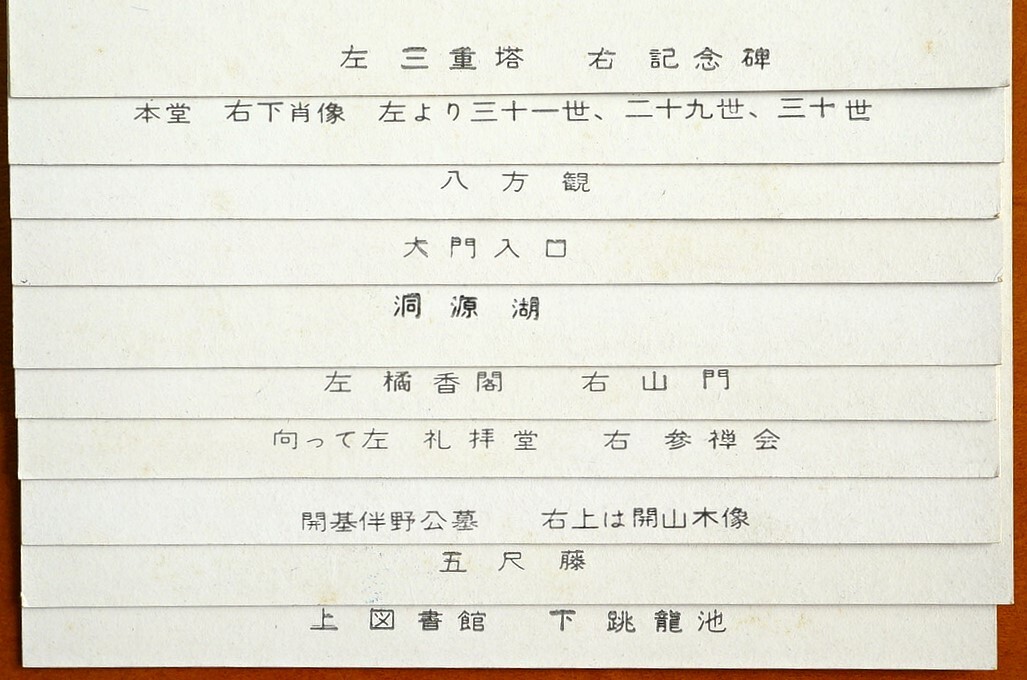 左 三重塔 右 記念碑
本堂 右下肖像 左より三十一世、二十九世、三十世
八方観
大門入口
洞源湖
左 橘香閣 右 山門
向って左 礼拝堂 右 参禅会
開基伴野公墓 右上は開山木像
五尺藤
上 図書館 下 跳龍池